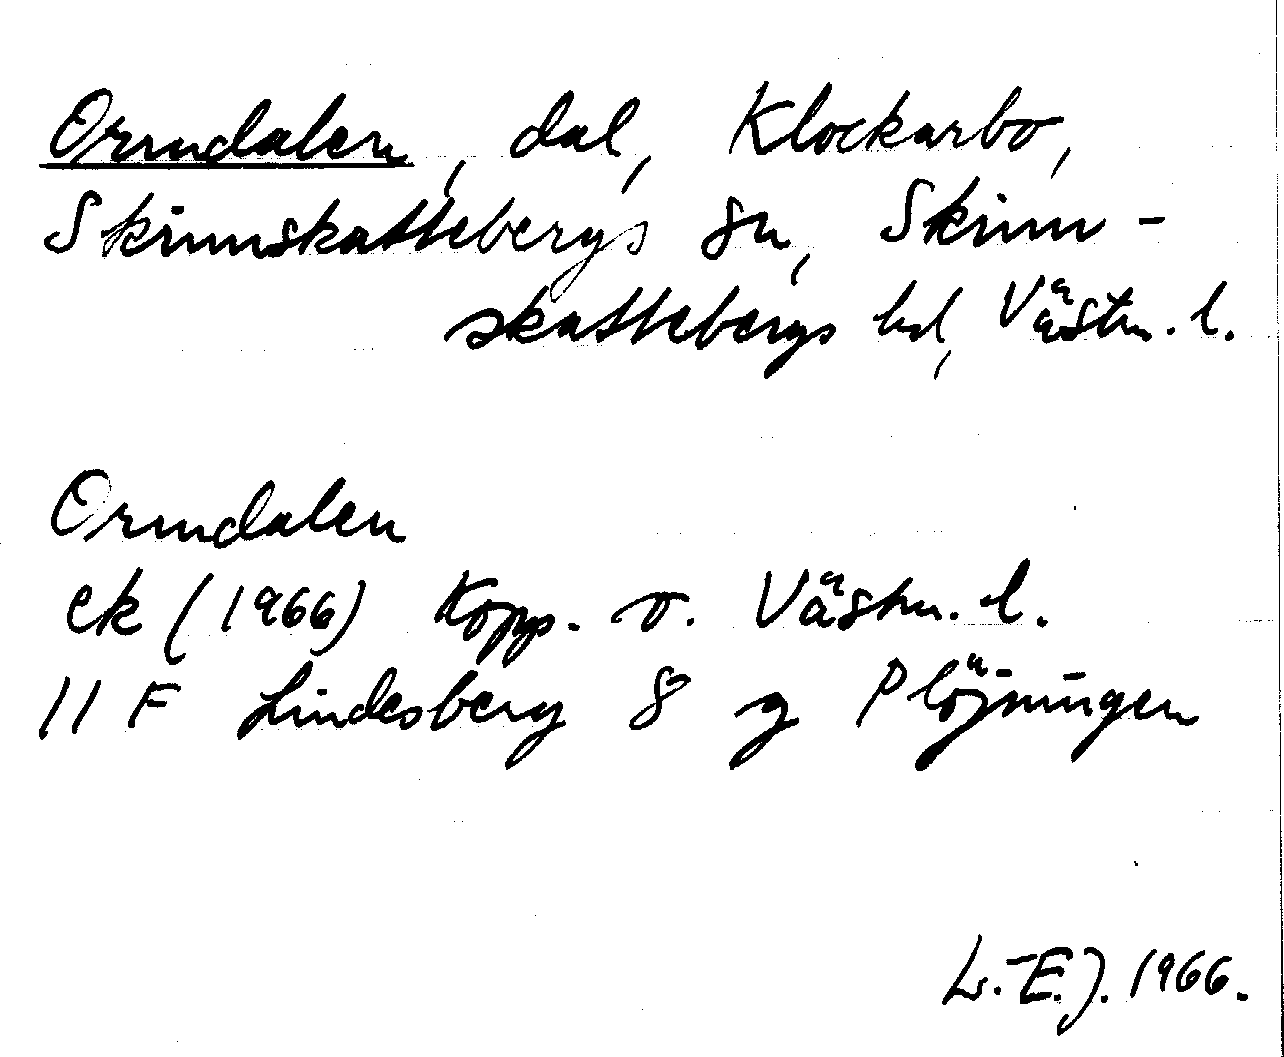 Ormdalen, dal, Klockarbo,
Skinnskattebergs sn, Skinn-
skattebergs hd, Västm. l.
Ormdalen
ek (1966) Kopp. o. Västm. l.
11 F Lindesberg 8 g Plöjningen
L.-E.J. 1966.